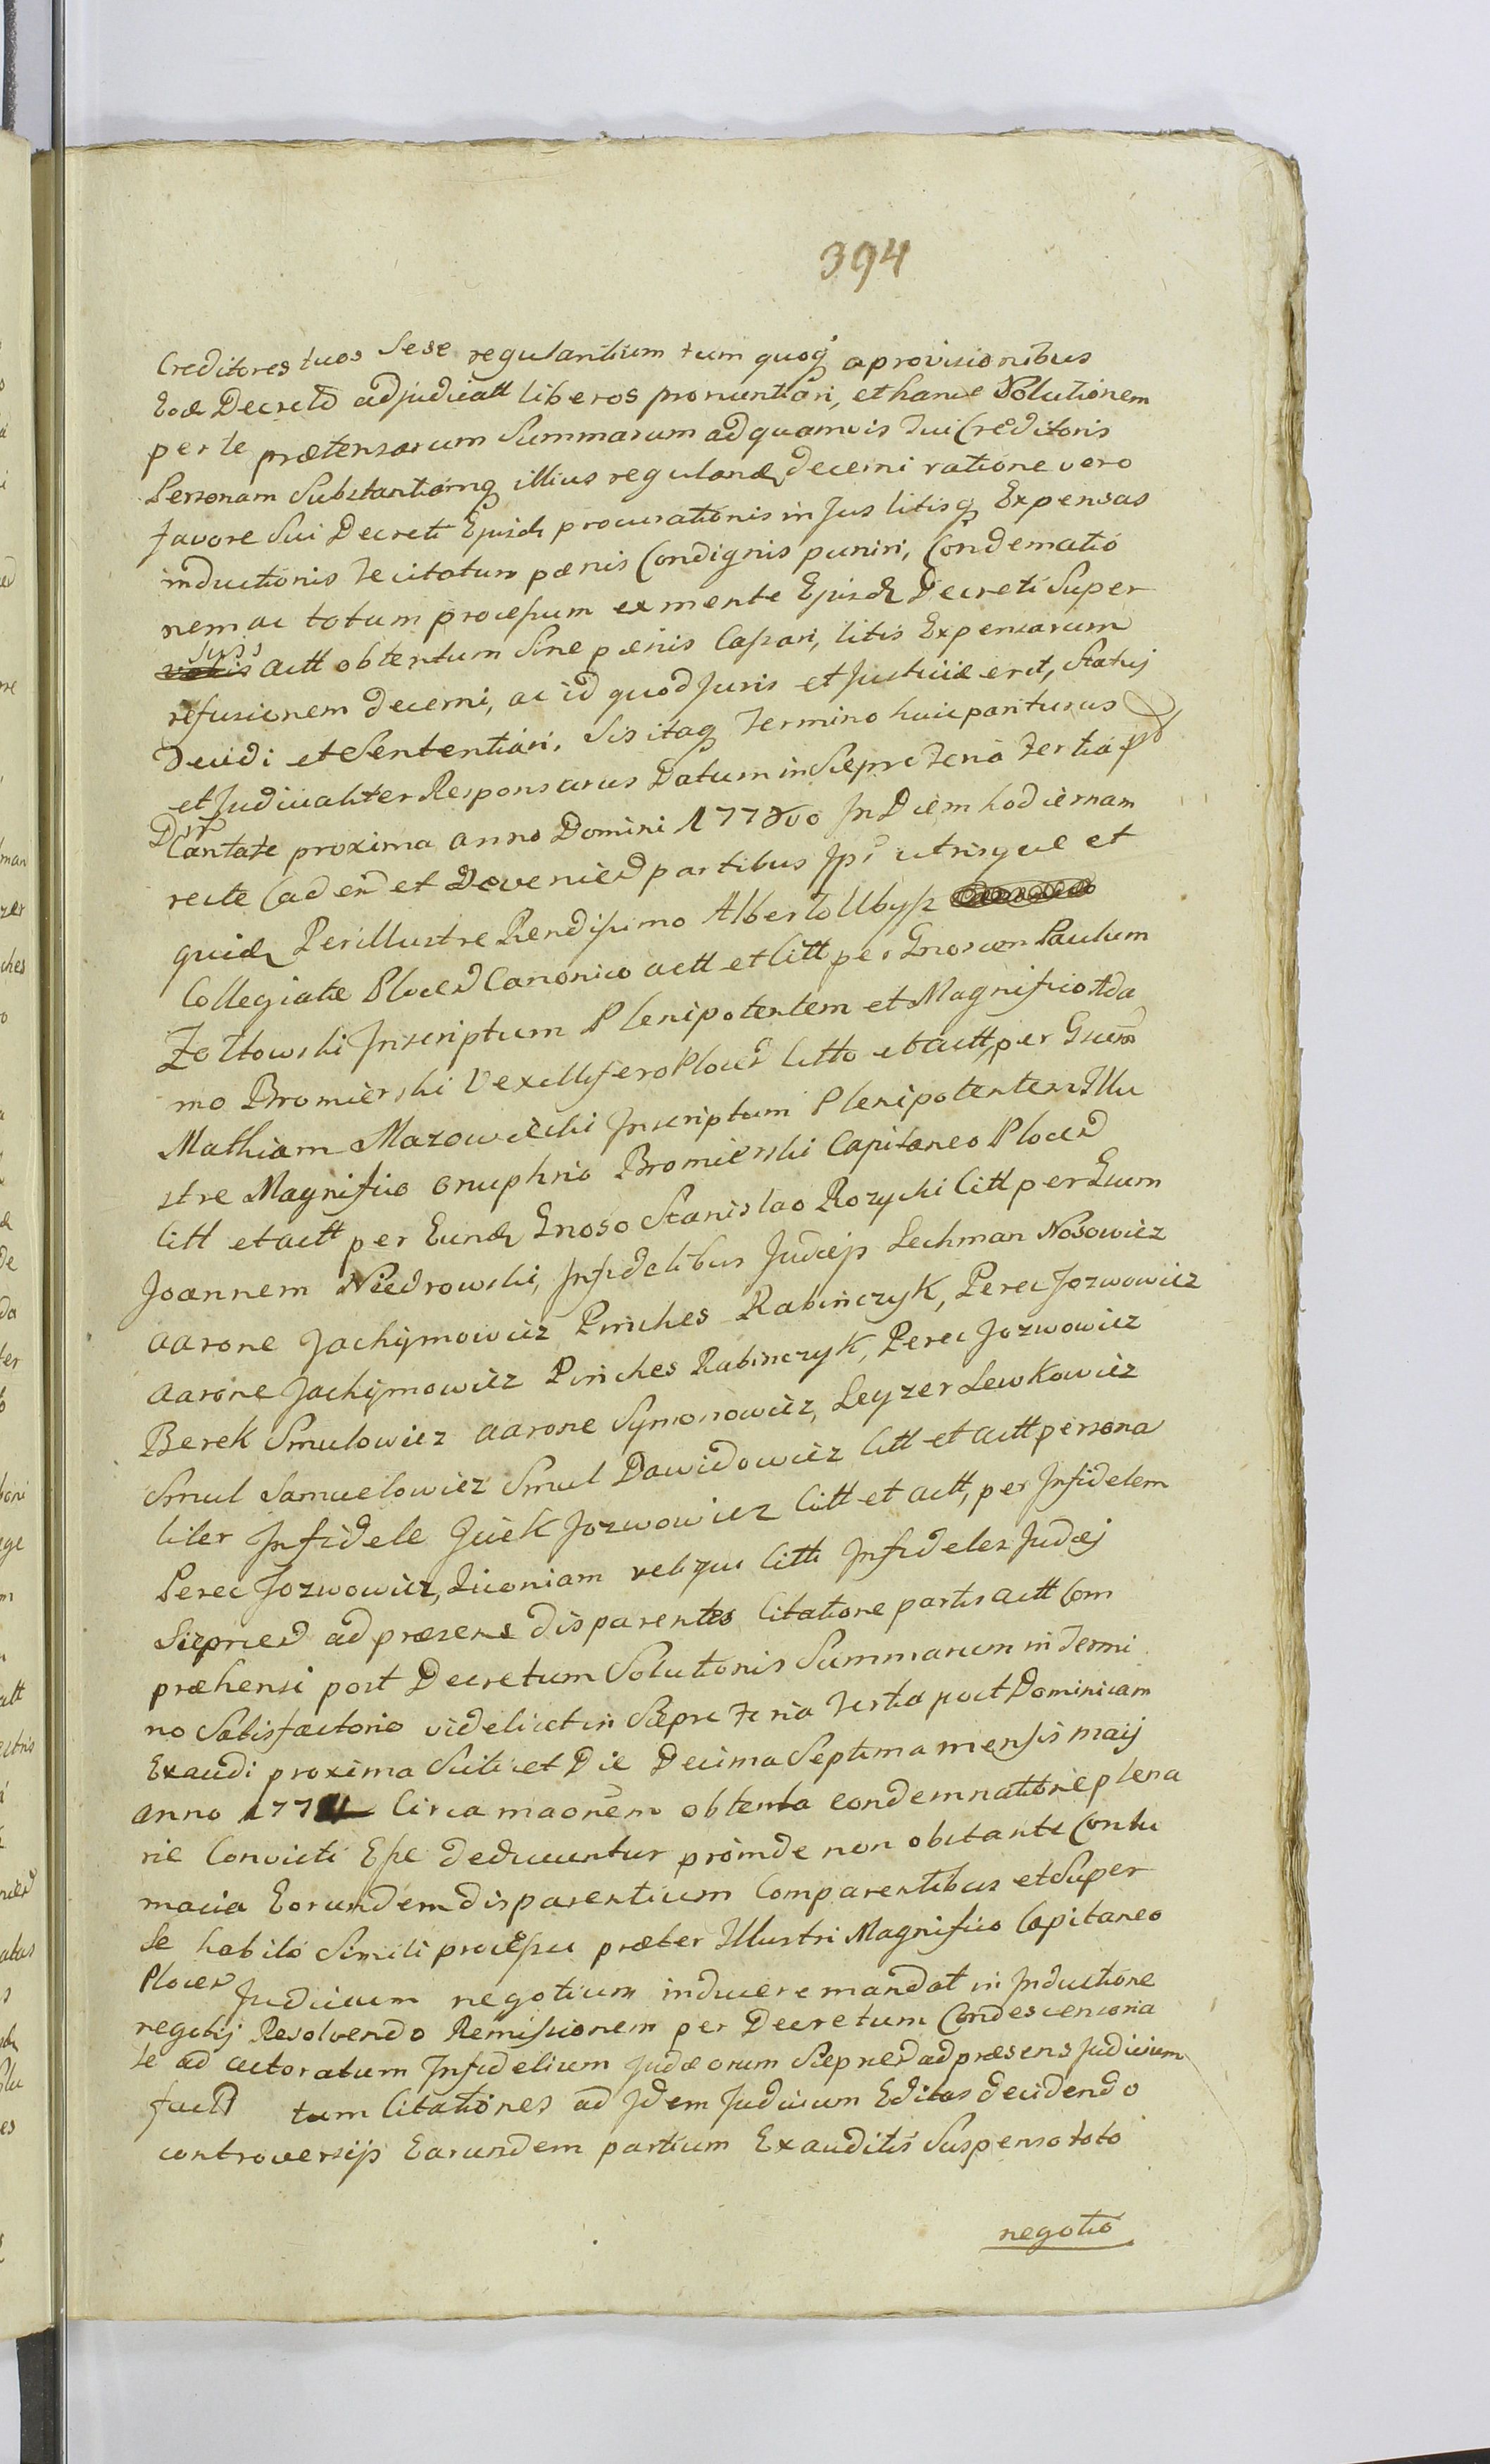 394
Creditores tuos Sese regulantium tum quoq aprovisionibus
Eod Decreto adjudicatt liberos pronuntiari, et hanc Solutionem
per te prætensarum Summarum ad quamvis Tui Creditoris
Personam Substantiamq illius reguland decerni ratione vero
favore Sui Decreti Ejusd procurationis in Jus litisq Expensas
inductionis Te citatum pœnis Condignis puniri, Condematio
nem ac totum processum ex mente Ejusd Decreti Super
actt obtentum Sine pœnis Cassari, litis Expensarum
refusionem decerni, ac id quod Juris et Justitiæ erit, Statuj
Decidi et Sententiari, Sis itaq Termino huic pariturus
et Judicialiter Responsurus Datum in Sieprc Feria Tertia pt
Dncam Cantate proxima anno Domini In Diem hodiernam
recte Caden et Devenien partibus Jpi utrisque et
quid Perillustre Rendissimo Alberto Ubysz
Collegiatæ Plocen Canonico actt et Citt per Gnosum Paulum
Zołtowski Inscriptum Plenipotentem et Magnifico Ada
mo Bromierski Vexillifero Plocen Citto et actt per Gsum
Mathiam Mazowiecki Inscriptum Plenipotentem Illu
stre Magnifico Onuphrio Bromierski Capitaneo Plocen
Citt et actt per Eund Gnoso Stanislao Rozycki Citt per Gsum
Joannem Niedrowski, Infidelibus Judæjs Lechman Nosowicz
aarone Jachymowicz Pinches Rabinczyk, Perec Jozwowicz
aarone Jachymowicz Pinches Rabinczyk, Perec Jozwowicz
Berek Smulowicz aarone Symonowicz, Leyzer Lewkowicz
Smul Samuelowicz Smul Dawidowicz Citt et actt persona
liter Infidele Jcek Jozwowicz Citt et actt, per Infidelem
Perec Jozwowicz, Quoniam reliqui Citti Infideles Judæj
Sieprcen ad præsens disparentes Citatione partis actt Com
præhensi post Decretum Solutionis Summarum in Termi
no Satisfactorio videlicet in Sieprc Feria Tertia post Dominicam
Exaudi proxima Scilicet Die Decima Septima mensis maij
anno Circa maonem obtenta condemnatione plena
rie Convicti Esse deducuntur proinde non obstante Contu
macia Eorundem disparentium Comparentibus et Super
Se habito Simili processu præter Illustri Magnifico Capitaneo
Plocen Judicium negotium inducere mandat in Inductione
negotij Resolvendo Remissionem per Decretum Condescensoria
le ad actoratum Infidelium Judæorum Sieprcen ad præsens Judicium
fact tum Citationes ad Idem Judicium Editas decidendo
controversijs Earundem partium Exauditis Suspenso toto
negotio